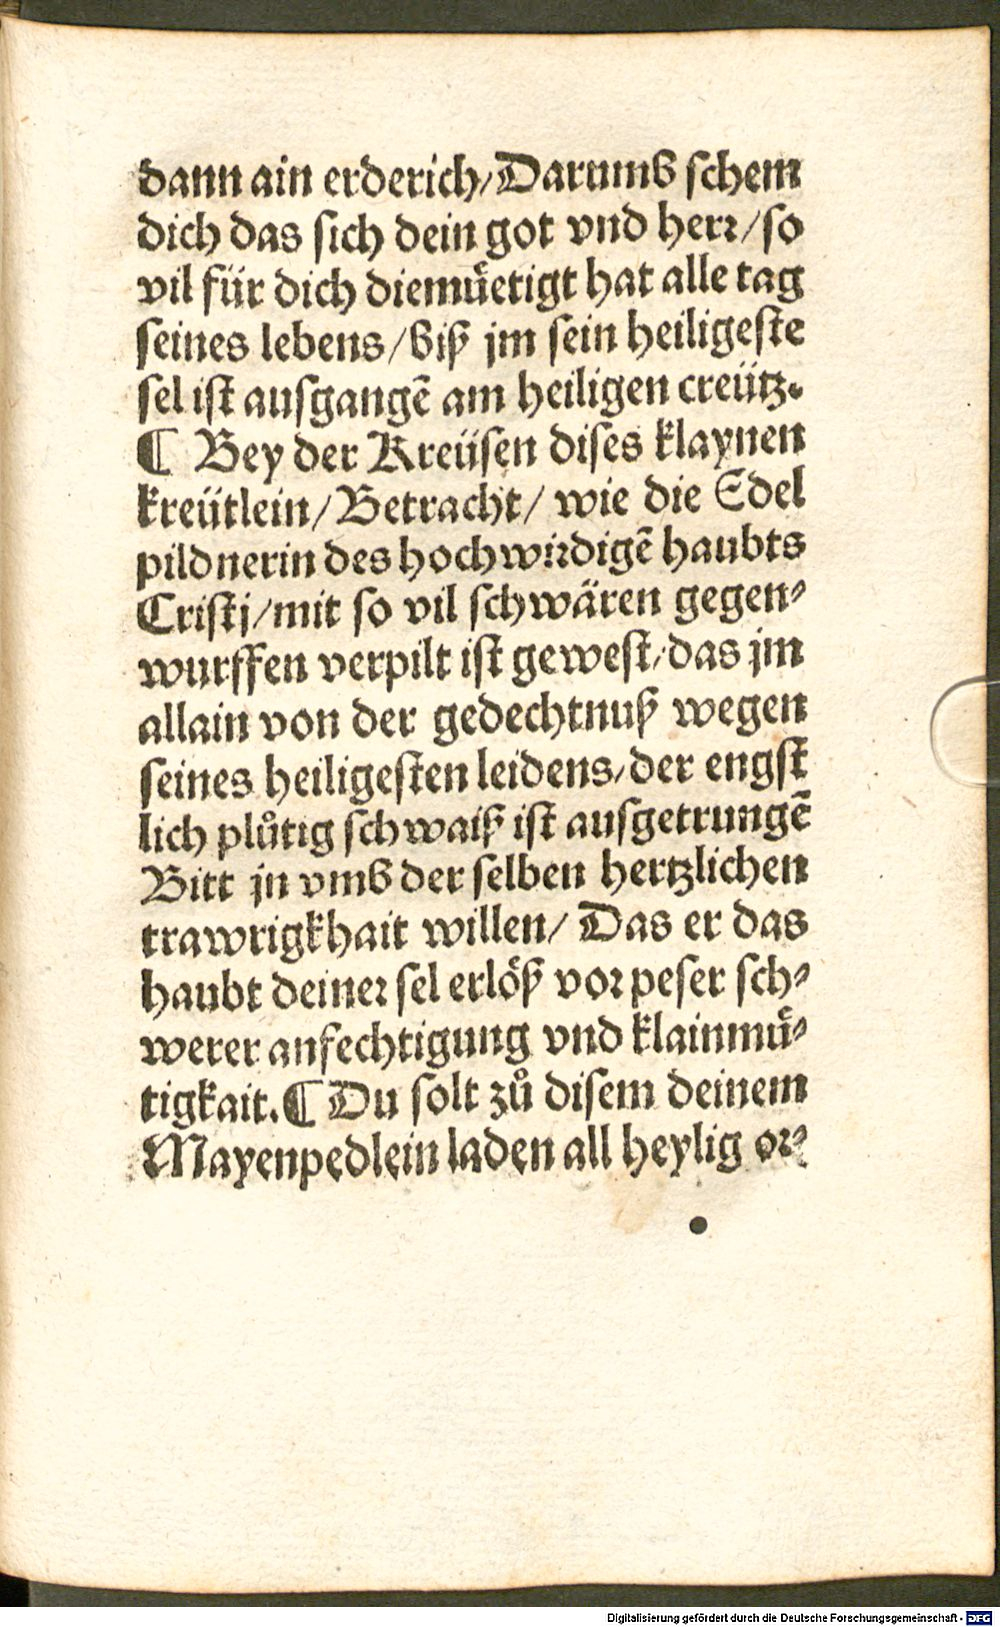 dann ain erderich/Darumb schem
dich das sich dein got vnd herr/so
vil für dich diemuͤetigt hat alle tag
seines lebens/biß jm sein heiligeste
sel ist ausgangē am heiligen creütz.
¶ Bey der Kreüsen dises klaynen
kreütlein/Betracht/ wie die Edel
pildnerin des hochwirdigē haubts
Cristj/mit so vil schwären gegen⸗
wurffen verpilt ist gewest/das jm
allain von der gedechtnuß wegen
seines heiligesten leidens/der engst
lich pluͦtig schwaiß ist ausgetrungē
Bitt jn vmb der selben hertzlichen
trawrigkhait willen/ Das er das
haubt deiner sel erlöß vor peser sch⸗
werer anfechtigung vnd klainmuͤ⸗
tigkait.¶ Du solt zuͦ disem deinem
Mayenpedlein laden all heylig or⸗
Digitalisierung gefördert durch die Deutsche Forschungsgemeinschaft - DFG